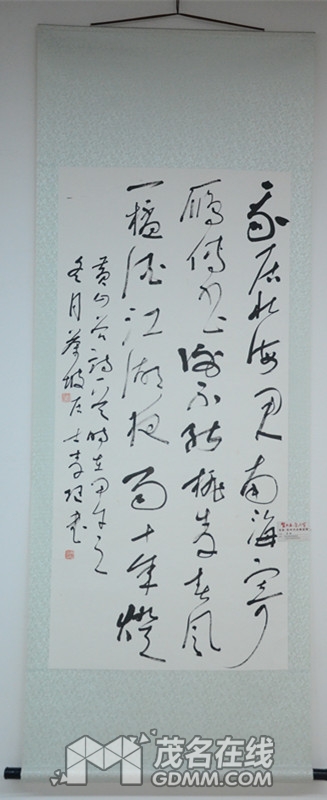 我居北海君南海寄
雁传书谢不能桃李春风
一杯酒江湖夜雨十年灯
黄山谷诗一首时在甲午之
冬月
茂名在线
GDMM.COM